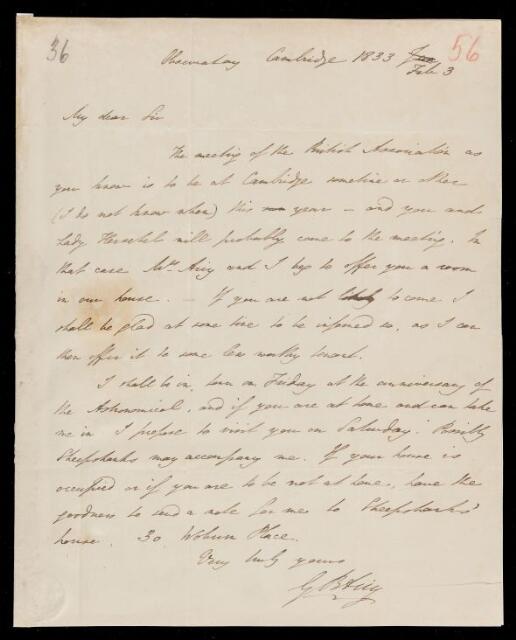 36
56
Observatory Cambridge 1833 Jan
Feb 3
My dear Sir
The meeting of the British Association as
you know is to be at Cambridge sometime or other
(I do not know when) this year – and you and
Lady Herschel will probably come to the meeting. In
that case Mrs. Airy and I beg to offer you a room
in our house. — If you are not likely to come I
shall be glad at some time to be informed so, as I can
then offer it to some less worthy tenant.
I shall be in town on Friday at the anniversary of
the Astronomical, and if you are at home and can take
me in I propose to visit you on Saturday. Possibly
Sheepshanks may accompany me. If your house is
occupied or if you are to be not at home, have the
goodness to send a note for me to Sheepshanks'
house. 30 Woburn Place.
Very truly yours
G B Airy